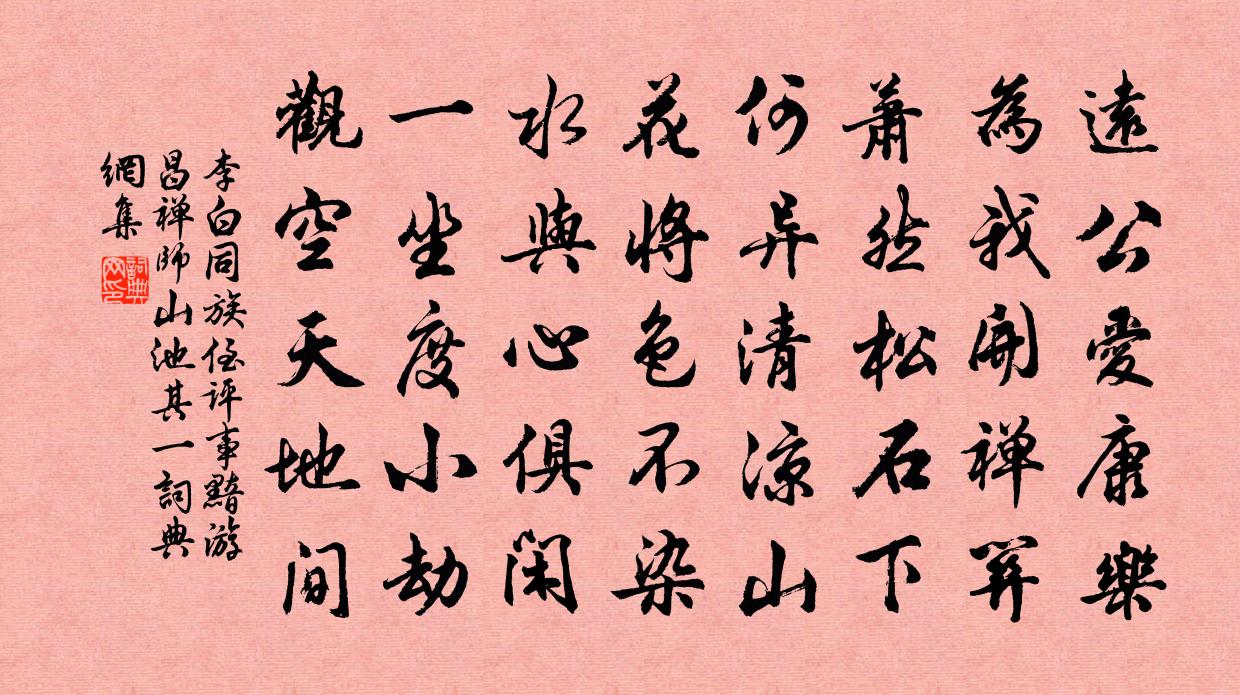 遠公愛康樂
為我開禅關
蕭然松石下
何异清涼山
花將色不染
水與心俱閑
一坐度小劫
觀空天地間
李白同族侄評事黯游
昌禅師山池其一詞典
網集
詞典
网印